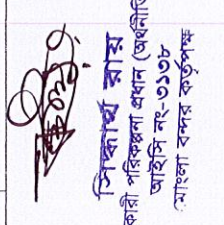 সিদ্ধার্থ রায়
কারী পরিকল্পনা প্রধান (অর্থনীতি
আইসি নং-৩১৩৮
মোংলা বন্দর কর্তৃপক্ষ